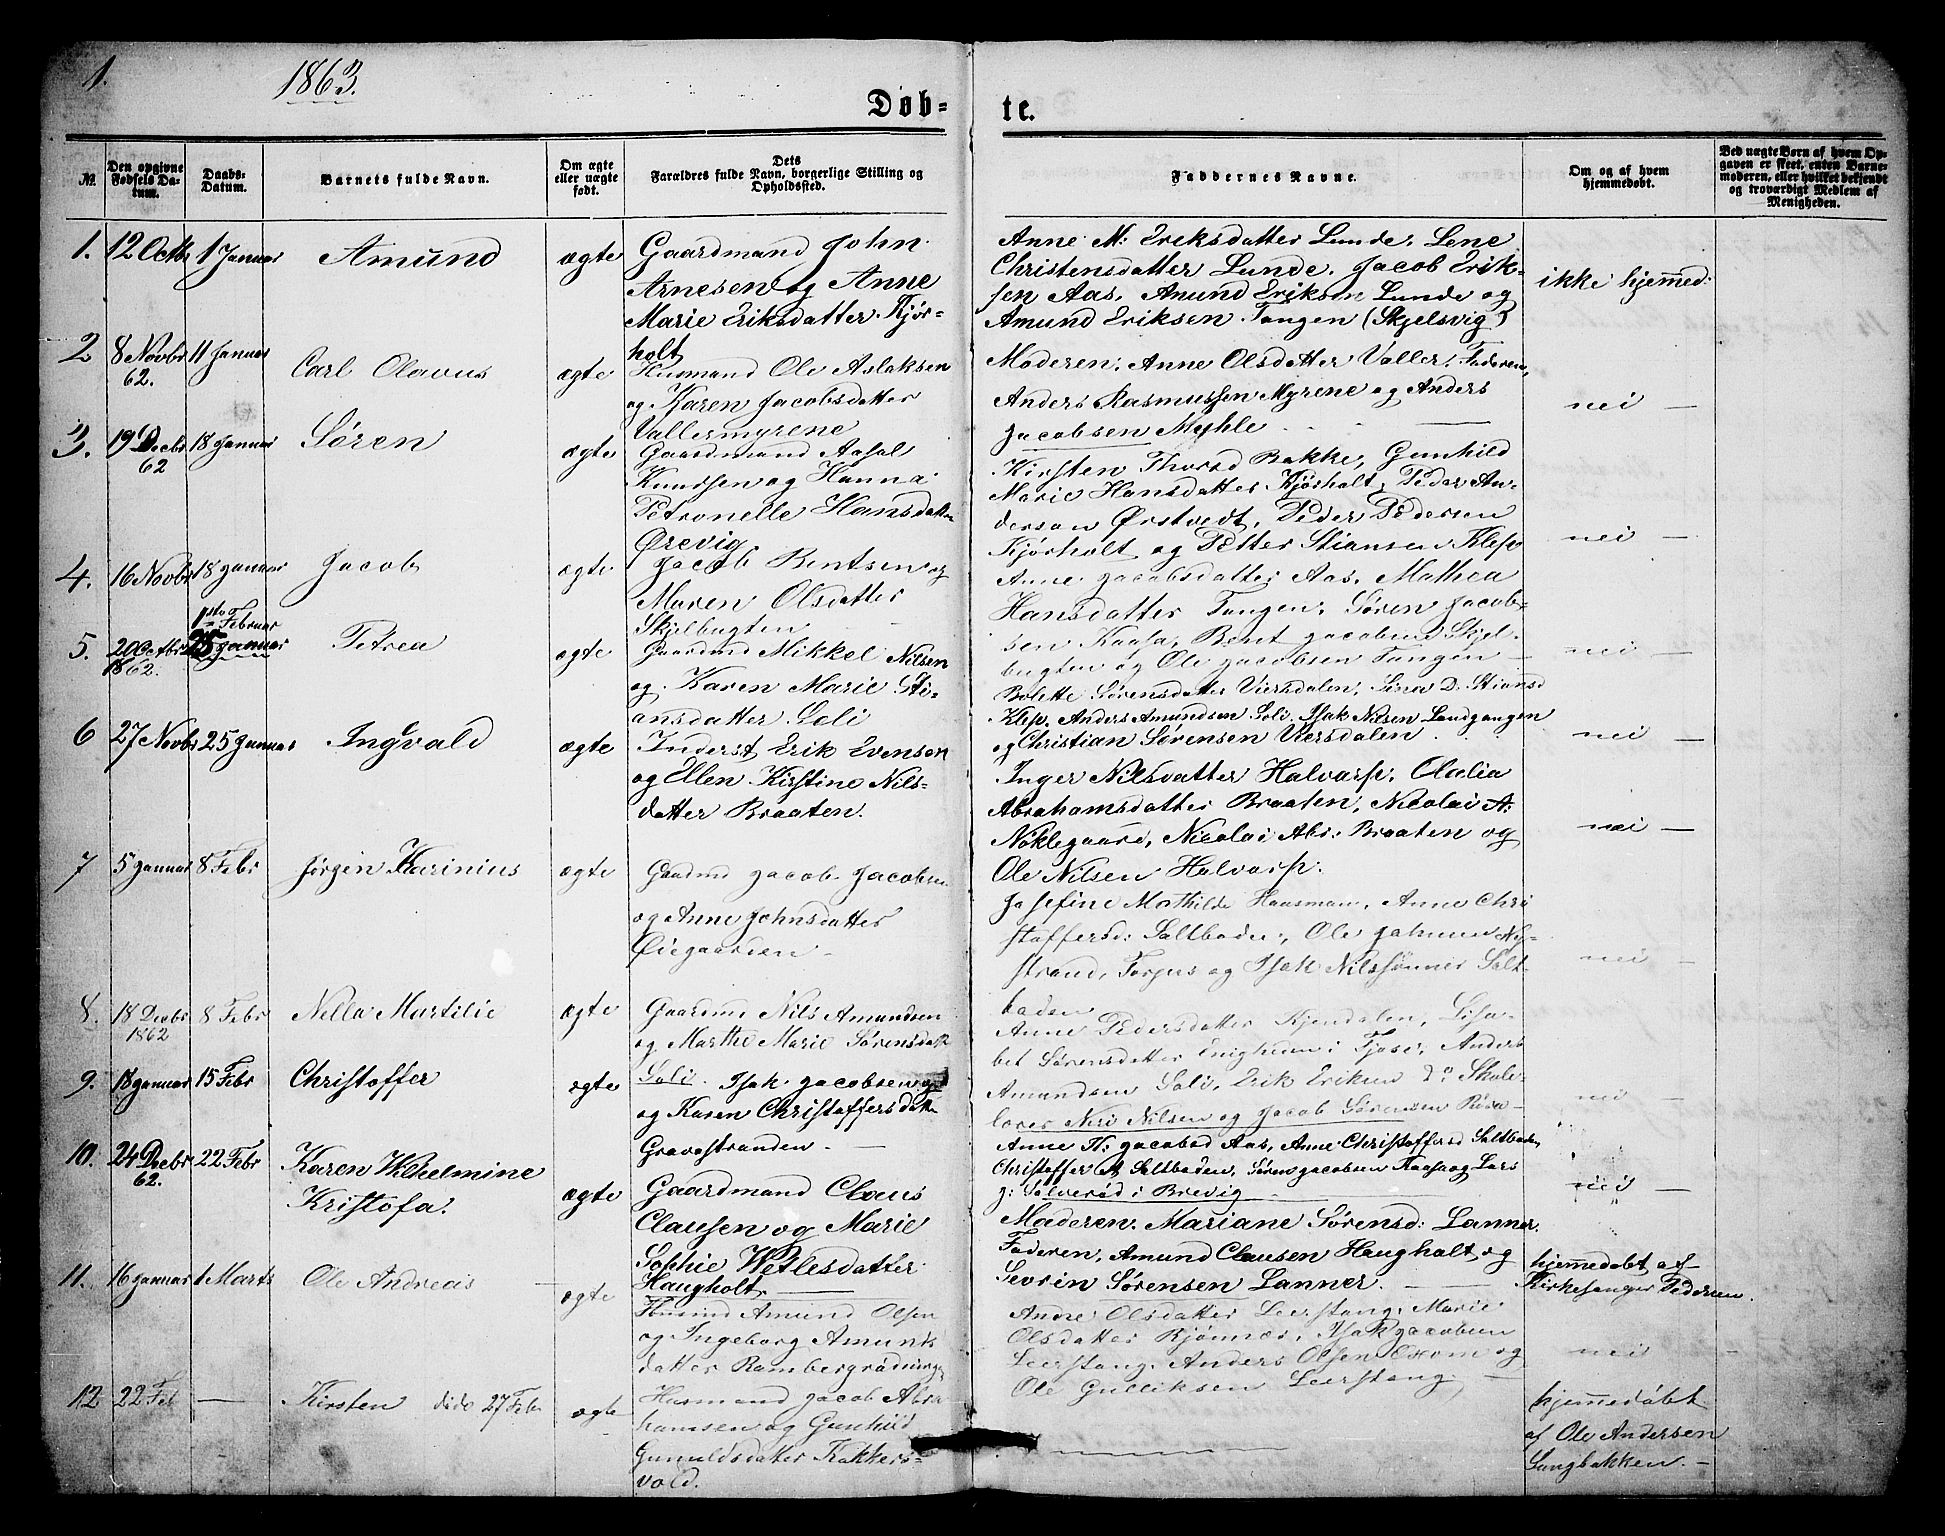 1.
1863.
Døb-
te.
№.
Den opgivne Fødsels Datum.
Daabs-Datum.
Barnets fulde Navn.
Om ægte eller uægte født.
Dets
Farældres fulde Navn, borgerlige Stilling og Opholdssted.
Faddernes Navne.
Om og af hvem hjemmedøbt.
Ved uægte Børn af hvem Opgaven er skeet, enten Barnemoderen, eller hvilket bekjendt og troværdigt Medlem af Menigheden.
1. 12 Octb 1 Januar Amund ægte Gaardmand John
Arnesen og Anne
Marie Eriksdatter Kjør-
holt
Anne M: Eriksdatter Lunde. Lene
Christensdatter Lunde. Jacob Erik-
sen Aas. Amund Eriksen Lunde og
Amund Eriksen Tangen (Skjelsvig)
ikke hjemmed:
2 8 Novbr 62. 11 Januar Carl Olavus ægte Husmand Ole Aslaksen
og Karen Jacobsdatter
Vallermyrene
Moderen. Anne Olsdatter Valler. Faderen,
Anders Rasmussen Myrene og Anders
Jacobsen Myhle
nei —
3. 19 Decbr 62 18 Januar Søren ægte Gaardmand
Knudsen og Hanna
Petronelle Hansdatter
Ørevig.
Kirsten Thorsd Bakke, Gunhild
Marie Hansdatter Kjørholt, Peder An-
dersen Ørstvedt, Peder Pedersen
Kjørholt og Petter Stiansen Klep
nei —
4. 16 Novbr 18 Januar Jacob ægte Jacob Bentsen og
Maren Olsdatter
Skjelbugten
Anne Jacobsdatter Aas. Mathea
Hansdatter Tangen. Søren Jacob-
sen Kaasa, Bent Jacobsen Skjel-
bugten og Ole Jacobsen Tangen —
nei —
5. 20 Octbr 1862. 1ste Februar 25 Januar Petrea ægte Gaardmd Mikkel Nilsen
og Karen Marie Sti-
ansdatter Soli
Bolette Sørensdatter Viersdalen, Sina D. Stiansd
Klep. Anders Amundsen Soli. Isak Nilsen Landgangen
og Christian Sørensen Viersdalen.
nei —
6 27 Novbr 25 Januar Ingvald ægte Inderst Erik Evensen
og Ellen Kirstine Nils-
datter Braaten.
Inger Nilsdatter Halvarp. Olælia
Abrahamsdatter Braaten, Nicolai A:
Noklegaard, Nicolai Abr: Braaten og
Ole Nilsen Halvarp.
nei —
7 5 Januar 8 Febr Jørgen Karinius ægte Gaardmd Jacob Jacobsen
og Anne Johnsdatter
Øiegaarden —
Josefine Mathilde Haasmann, Anne Chri
stoffersd: Saltboden, Ole Johnsen Ny-
strand, Torjus og Isak Nilssønner Salt-
boden
nei —
8. 18 Decbr 1862 8 Febr Nella Martilie ægte Gaardmd Nils Amundsen
og Marthe Marie Sørensdatt
Soli.
Anne Pedersdatter Kjendalen, Lisa-
bet Sørensdatter Enigheden i Anders
Amundsen Soli, Erik Eriksen do Skole-
lærer Neri Nilsen og Jacob Sørensen
nei —
9. 18 Januar 15 Febr Christoffer ægte Isak Jacobsen og
og Karen Christoffersdatte
Gravastranden —
Anne H. Jacobsd Aas, Anne Christoffersd Saltboden,
Christoffer A Saltboden, Søren Jacobsen Kaasa og Lars
Solverød i Brevig
nei —
10. 24 Decbr 62. 22 Febr Karen Wilhelmine
Kristofa. ægte Gaardmand Claus
Clausen og Marie
Sophie Wetlesdatter
Haugholt
Moderen. Mariane Sørensd: Lanner.
Faderen, Amund Clausen Haugholt og
Sevrin Sørensen Lanner. —
hjemmedøbt af
Kirkesanger Pedersen.
11. 16 Januar 1 Marts Ole Andreas — ægte Husmd Amund Olsen
og Ingeborg Amunds
datter
Andre Olsdatter Leerstang, Marie
Olsdatter Bjønnes, Isak Jacobsen
Leerstang. Anders Olsen og
Ole Gulliksen Leerstang, —
nei —
12 22 Feb — Kirsten døde 27 Febr ægte Husmand Jacob Abra
hamsen og Gunhild
Gunuldsdatter Kokkers-
vold.
hjemmedøbt
af Ole Andersen
Langbakken. —